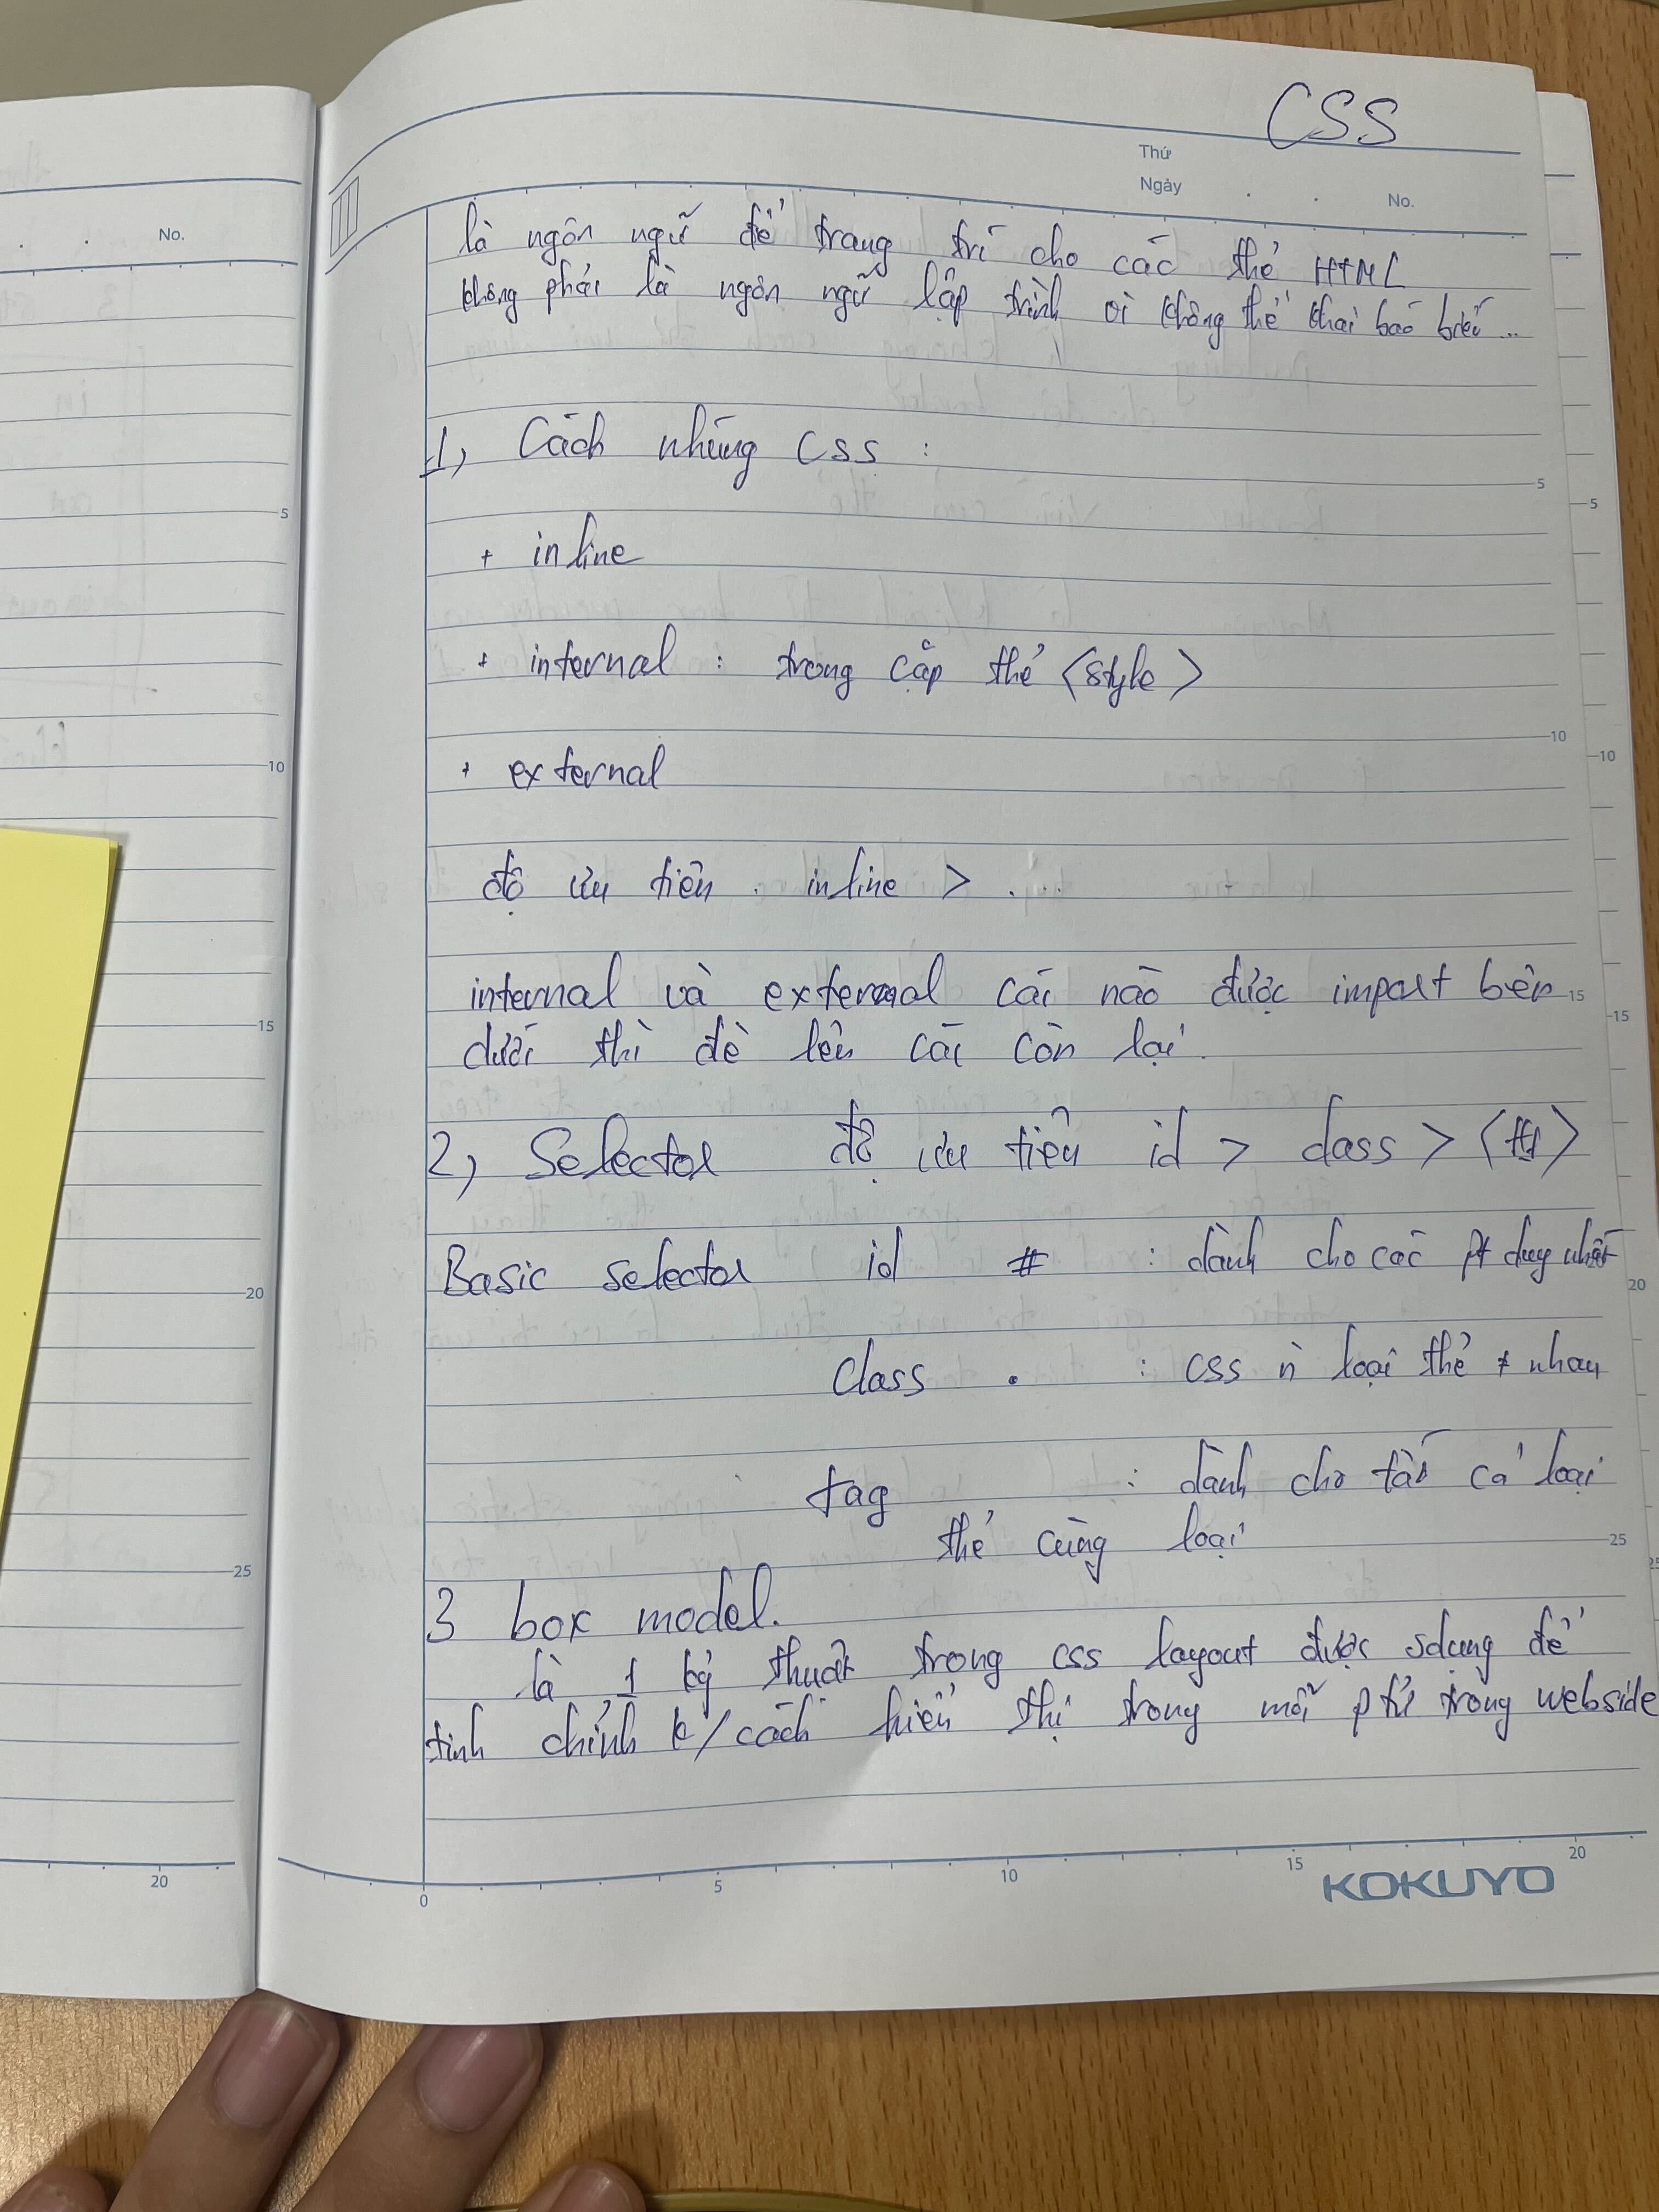 CSS
Thứ
Ngày
No.
No.
là ngôn ngữ để trang trí cho các thẻ HTML
không phải là ngôn ngữ lập trình vì không thể khai báo biến...
1, Cách nhúng CSS :
+ inline
+ internal : trong cặp thẻ <style>
+ external
độ ưu tiên . inline > ....
internal và external cái nào được import bên
dưới thì đè lên cái còn lại.
2, Selector độ ưu tiên id > class >
Basic selector id # : dành cho các pt duy nhất
class . : css n loại thẻ ≠ nhau
tag : dành cho tất cả loại
thẻ cùng loại
3 box model.
là 1 kỹ thuật trong css layout được sdung để
tinh chỉnh k/cách hiển thị trong mỗi ptử trong webside
0 5 10 15 20
KOKUYO